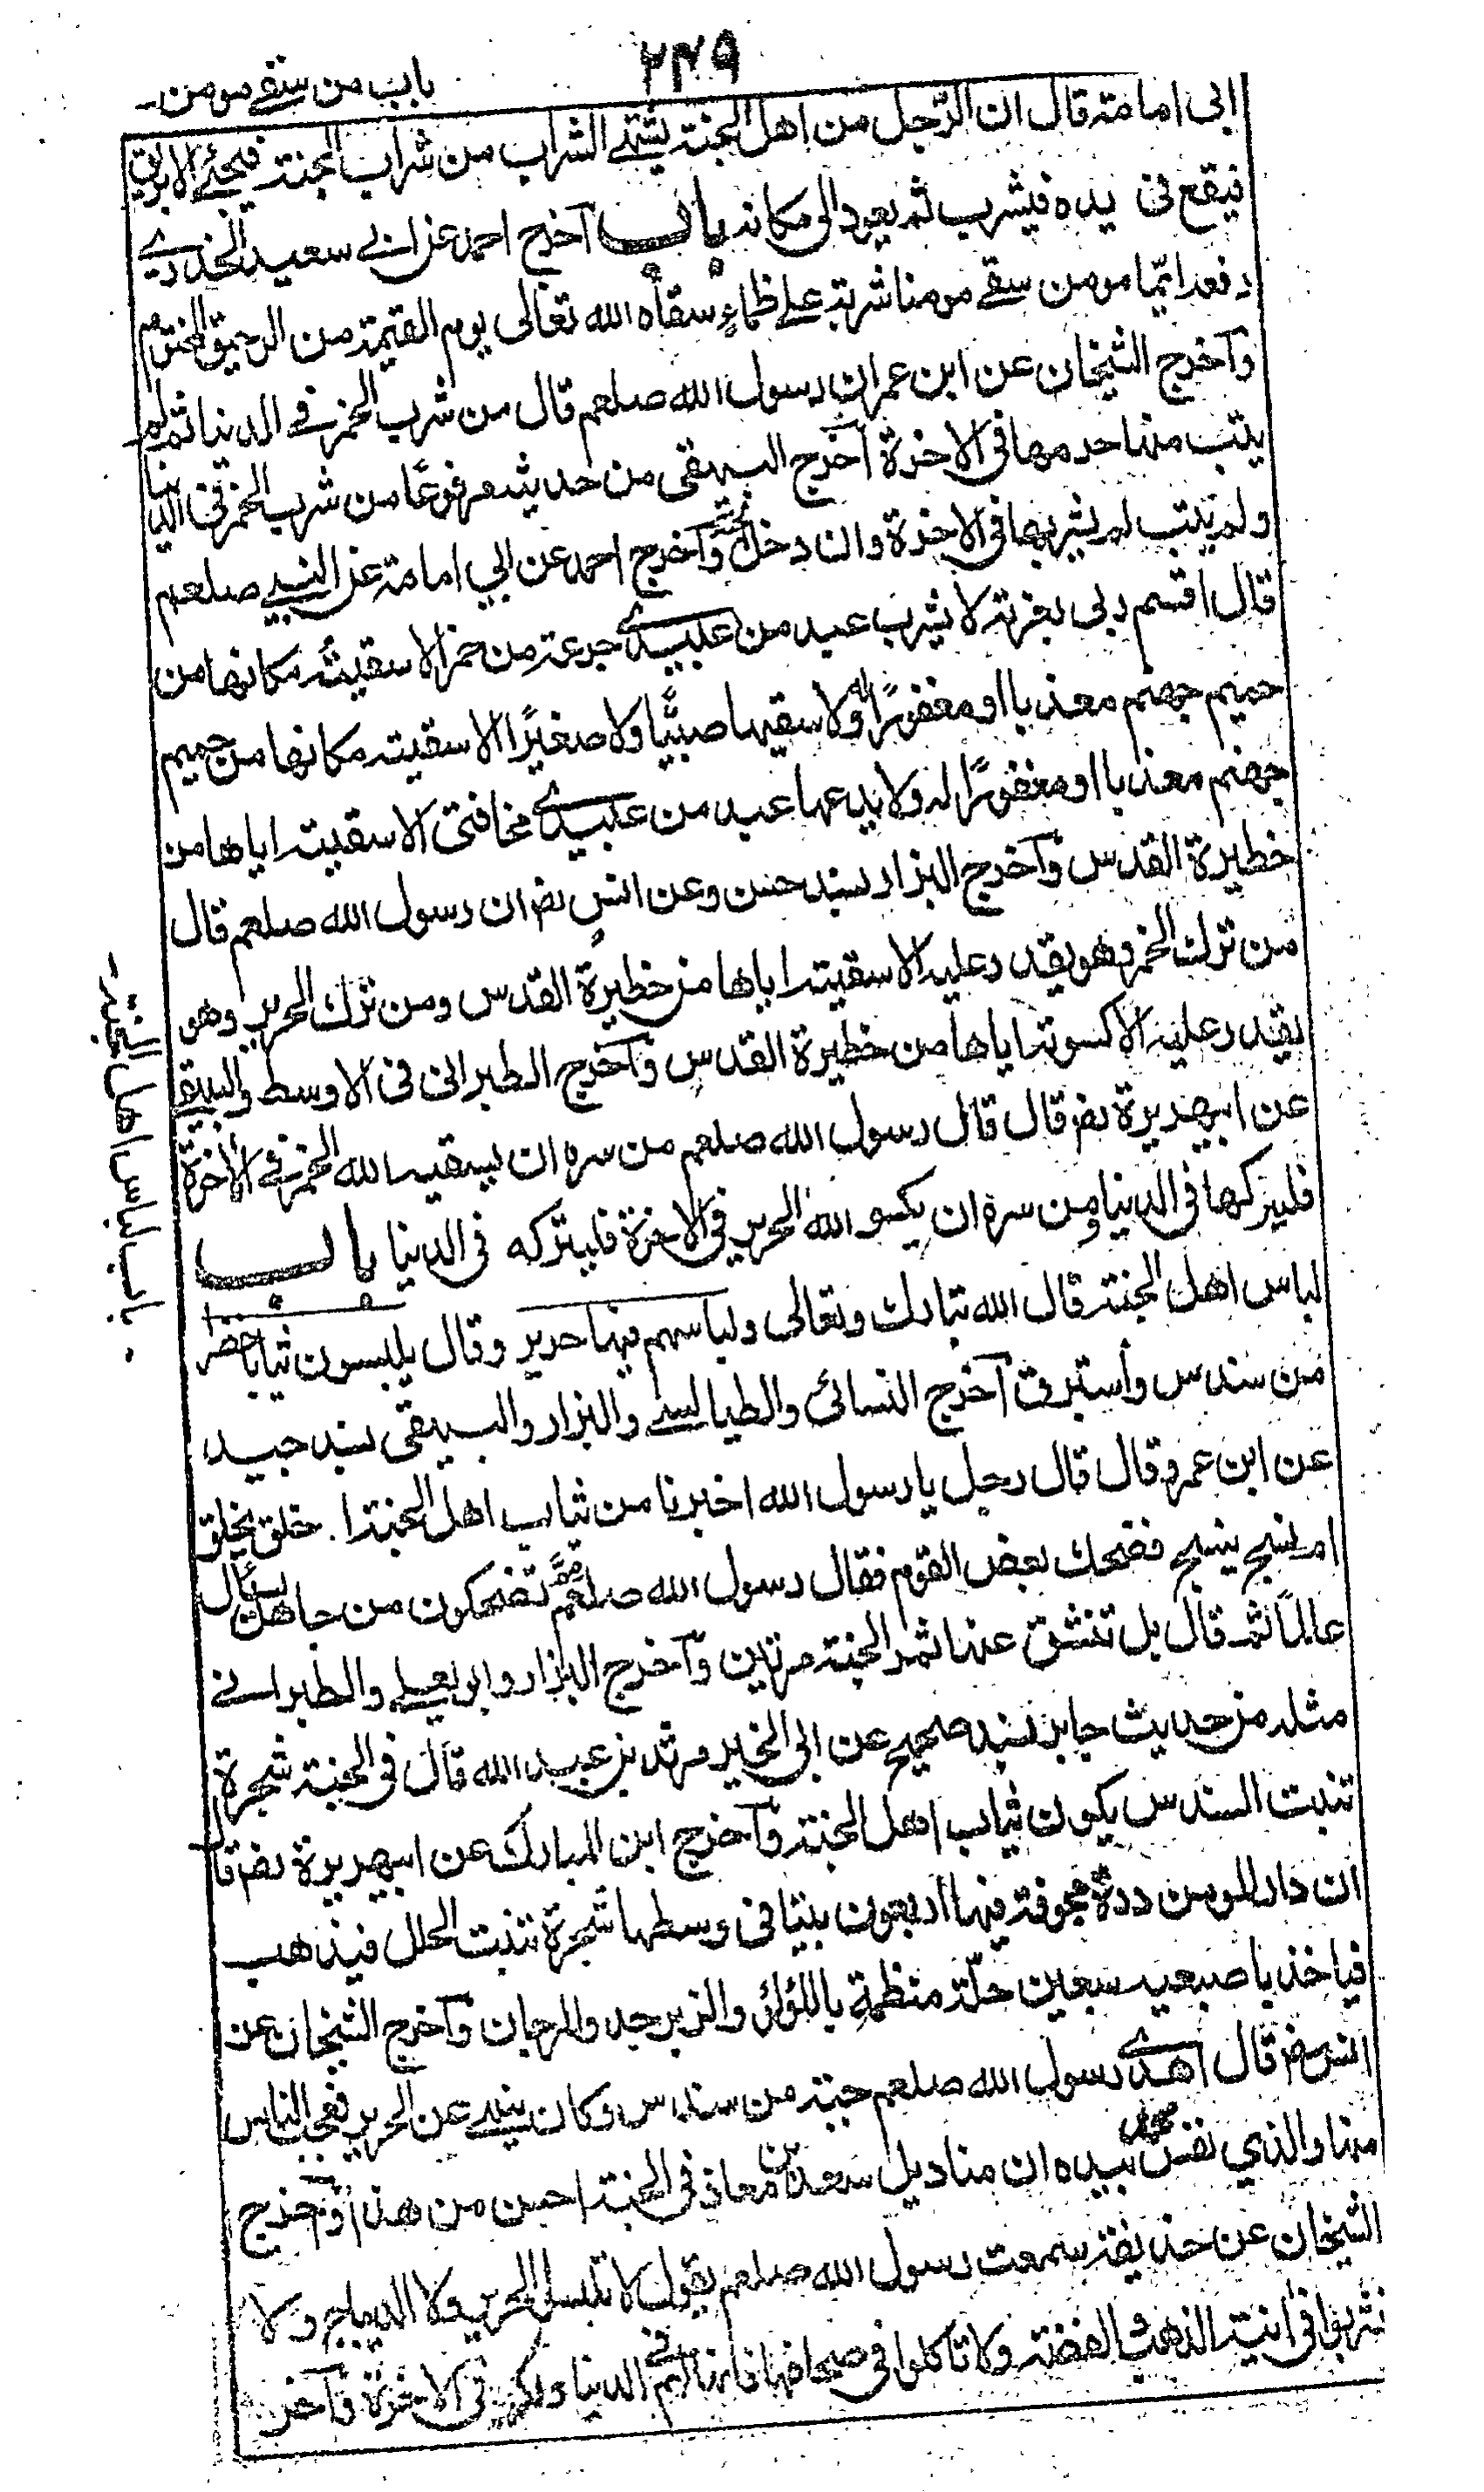 ۲۴۹
باب من سقے مومن۔
ابی امامۃ قال ان الرّجل من اهل الجنۃ یشتهے الشراب من شراب الجنۃ فیجئے الابریق
فیقع فی یدہ فیشرب ثم یعود الی مکانہ باب آخرج احمد عن ابے سعید الخدرے
رفعہ ایّما مومن سقے مومنا شربۃ علے ظماءٍ سقاہ اللہ تعالی یوم القیمۃ من الرحیق المختوم
وآخرج الشیخان عن ابن عمر ان رسول اللہ صلعم قال من شرب الخمر فے الدنیا ثم لم
یتب منها حرمها فی الاخرۃ آخرج البیهقی من حدیثہ مرفوعًا من شرب الخمر فی الدنیا
ولم یتب لم یشربها فی الاخرۃ وان دخل الجنۃ وآخرج احمد عن ابی امامۃ عن النبے صلعم
قال اقسم ربی بعزتہ لا یشرب عبد من عبیدے جرعۃ من خمر الا سقیتُہ مکانها من
حمیم جهنم معذبا او مغفورًا لہ ولا سقیها صبیًّا ولا صغیرًا الا سقیتہ مکانها من حمیم
جهنم معذبا او مغفورًا لہ ولا یدعها عبد من عبیدے مخافتی الا سقیتہ ایاها من
خطیرۃ القدس وآخرج البزار بسند حسن وعن انس رض ان رسول اللہ صلعم قال
من ترك الخمر وهو یقدر علیہ الا سقیتہ ایاها من خطیرۃ القدس ومن ترك الحریر وهو
یقدر علیہ الا کسوتہ ایاها من خطیرۃ القدس وآخرج الطبرانی فی الاوسط والبیهقے
عن ابیهریرۃ رض قال قال رسول اللہ صلعم من سرہ ان یسقیہ اللہ الخمر فے الاخرۃ
فلیترکها فی الدنیا ومن سرہ ان یکسو اللہ الحریر فی الاخرۃ فلیترکہ فی الدنیا باب
لباس اهل الجنۃ قال اللہ تبارك وتعالی ولباسهم فیها حریر وقال یلبسون ثیابا خضرا
من سندس وأستبرق آخرج النسائی والطیالسے والبزار والبیهقی بسند جید
عن ابن عمرو قال قال رجل یا رسول اللہ اخبرنا من ثیاب اهل الجنۃ ا. خلق یخلق
ام نسج ینسج فضحك بعض القوم فقال رسول اللہ صلعم تضحکون من جاهل یسأل
عالماً ثم قال بل تنشق عنها ثمر الجنۃ مرتین وآخرج البزار وابو یعلے والطبرانے
مثلہ من حدیث جابر بسند صحیح عن ابی الخیر مرثد بن عبد اللہ قال فی الجنۃ شجرۃ
تنبت السندس یکون ثیاب اهل الجنۃ وآخرج ابن المبارك عن ابیهریرۃ رض قال
ان دار المومن درۃ مجوفۃ فیها اربعون بیتا فی وسطها شجرۃ تنبت الحلل فیذهب
فیاخذ باصبعیہ سبعین حلّۃ منظمۃ باللؤلؤ والزبرجد والمرجان وآخرج الشیخان عن
انس رض قال أهدے رسول اللہ صلعم جبۃ من سندس وکان ینهے عن الحریر فعجب الناس
منها والذي نفس محمد بیدہ ان منادیل سعد بن معاذ فی الجنۃ احسن من هذا وآخرج
الشیخان عن حذیفۃ سمعت رسول اللہ صلعم یقول لا تلبسوا الحریر ولا الدیباج ولا
تشربوا فی انیۃ الذهب والفضۃ ولا تاکلوا فی صحافها فانها لهم فی الدنیا ولکم فی الاخرۃ وآخر
باب لباس اهل الجنۃ۔